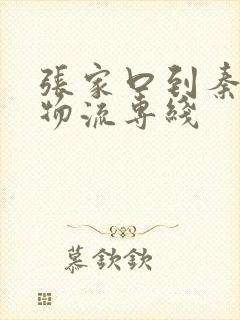 張家口到秦
物流專綫
慕欽欽